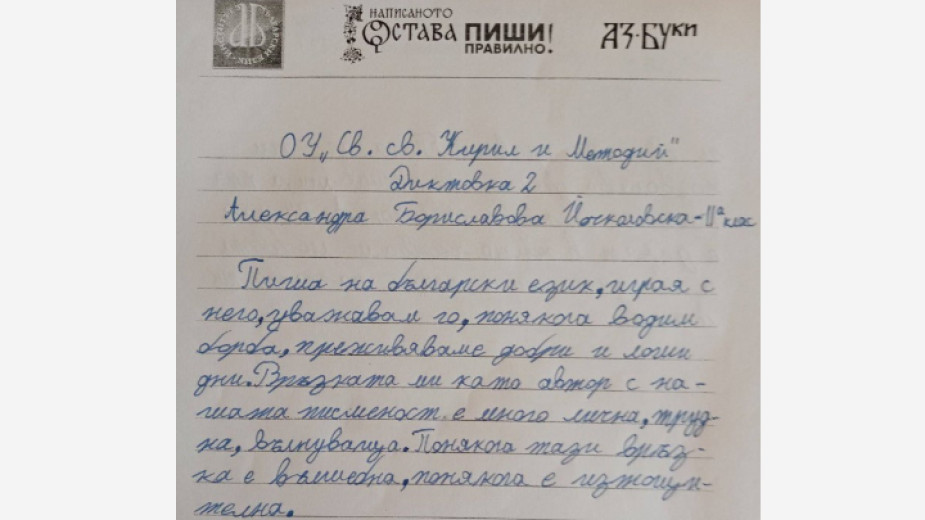 НАПИСАНОТО
ОСТАВА ПИШИ
ПРАВИЛНО!
АЗ·БУКИ
ОУ „Св. св. Кирил и Методий"
Диктовка 2
Александра Бориславова - IIа клас
Пиша на български език, играя с
него, уважавам го, понякога водим
борба, преживяваме добри и лоши
дни. Връзката ми като автор с на-
шата писменост е много лична, труд-
на, вълнуваща. Понякога тази връз-
ка е вълшебна, понякога е изтощи-
телна.